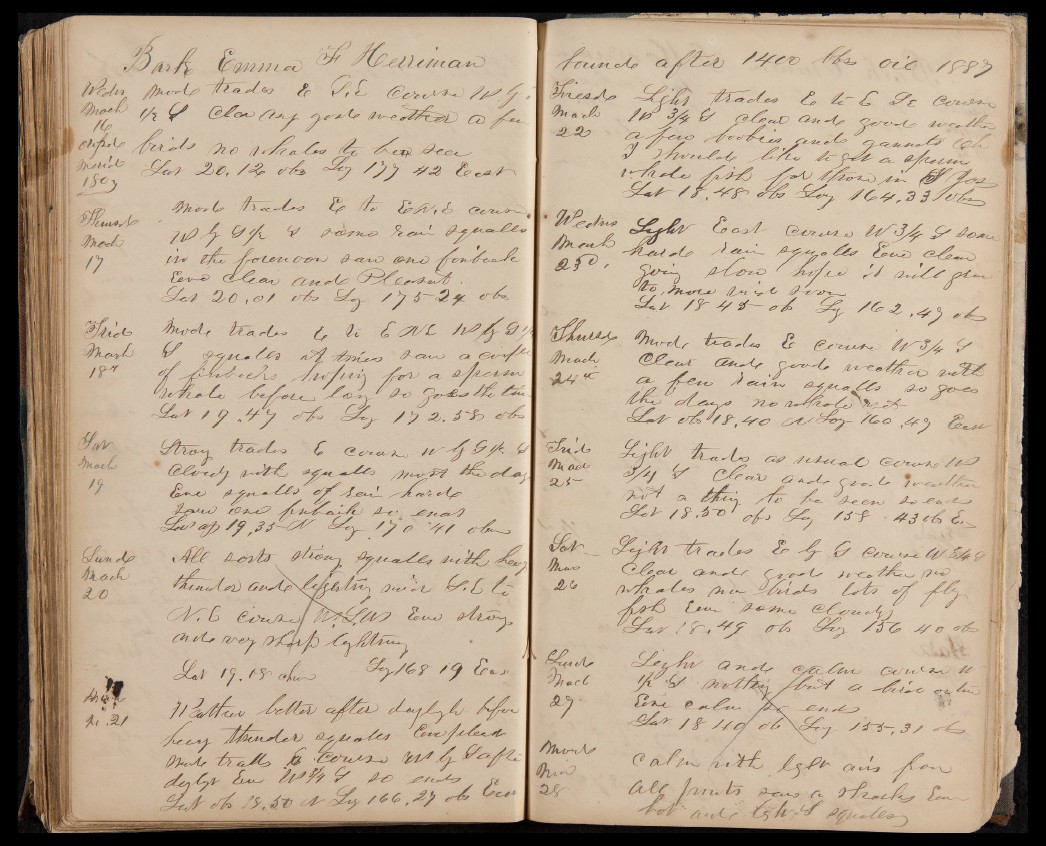 Bark Emma F Herriman
Wedn Mode trades E S,E Course W by
Mach 1/2 S Clear any gode weather a few
16 birds no whales to been seen
1887 Lat 20,12 obs Log 177 42 East
Thursd Mode trades E to E.N.E course
Mach W by S 1/2 S some rain squalls
17 in the forenoon saw one finback
Eve Clear and Pleasent
Lat 20,01 obs Log 175 24 obs
Frid Mode trades E to E NE W by S 1/2
Mach S squales at times saw a couple
18 of finbacks hoping for a sperm
whale before long so goes the time
Lat 19,47 obs Log 172.58 obs
Sat Strong trades E course W by S 1/2 S
Mach Cloudy with squalls most the day
19 Eve squalls of rain harde
saw one finback so ends
Lat ap 19,35 N Log 170 41 obs
Sund All sorts strong squalls with heavy
Mach thunder and lightning wind S.E to
20 N.E course W.SW Eve strong
and very sharp lightning
Lat 19.18 Log 168 19 East
21 Wether better after daylight before
heavy thunder squales Eve pleas
Mode trades E course W by S after
daylight Eve W 3/4 S so ends
Lat obs 18.50 N Log 166,27 obs East
bounde after 1400 lbs oil 1887
Tuesd Light trades E to E SE course
Mach W 3/4 S clear and goode weather
22 a few boobies and gannets Oh
I shoulde like to get a sperm
whale fish for
Lat 18,48 obs Log 164,33 obs
Wedns Light East course W 3/4 S some
March harde rain squalls Eve clear
23d going slow hope it will give
to more wind soon
Lat 18 45 ob Log 162,47 ob
Thursd Mode trades E course W 3/4 S
Mach Clear and goode weather with
24 a few rain squalls so goes
the days no whale
Lat obs 18,40 N Log 160,49 East
Frid Light trades as usual course W
Mach 3/4 S Clear and goode weather
25 not a thing to be seen so ends
Lat 18.50 obs Log 158 43 obs E
Sat Light trades E by S course W 3/4 S
Mar Clear and goode weather no
26 whales no birds lots of fly
fish Eve some cloudy
Lat 18,49 ob Log 156 40 ob
Sund Light and calm course W
Mach 1/2 S nothing but a
27 Eve calm so ends
Lat 18 40 ob Log 155,31 ob
Mond calm with light airs from
28 all points saw a sharks Eve
hot and light squalls